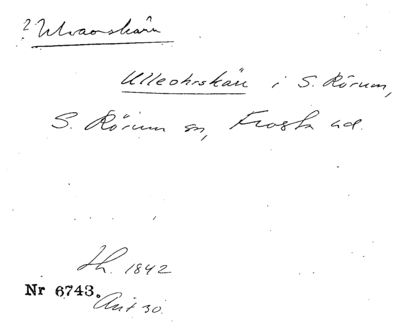 ? Ulvaorskärr
Ulleohrskärr i S. Rörum,
S. Rörum sn, Frosta hd.
Lh. 1842
Nr 6743.
Avt 30.